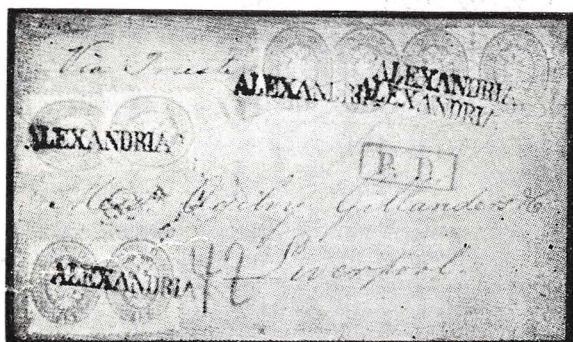 Via Trieste
ALEXANDRIA
ALEXANDRIA
ALEXANDRIA
ALEXANDRIA
P. D.
Messrs Ogilvy Gillanders &
Liverpool.
ALEXANDRIA
42